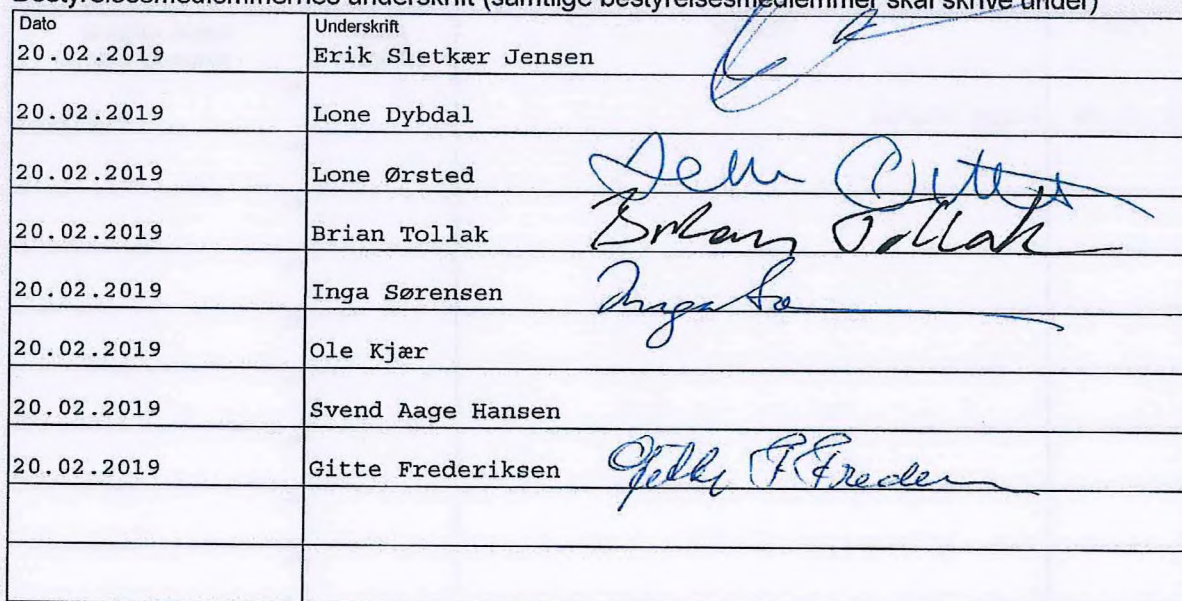 Bestyrelsesmedlemmernes underskrift (samtlige bestyrelsesmedlemmer skal skrive under)
Dato Underskrift
20.02.2019 Erik Sletkær Jensen
20.02.2019 Lone Dybdal
20.02.2019 Lone Ørsted
20.02.2019 Brian Tollak Brian Tollak
20.02.2019 Inga Sørensen Inga
20.02.2019 Ole Kjær
20.02.2019 Svend Aage Hansen
20.02.2019 Gitte Frederiksen